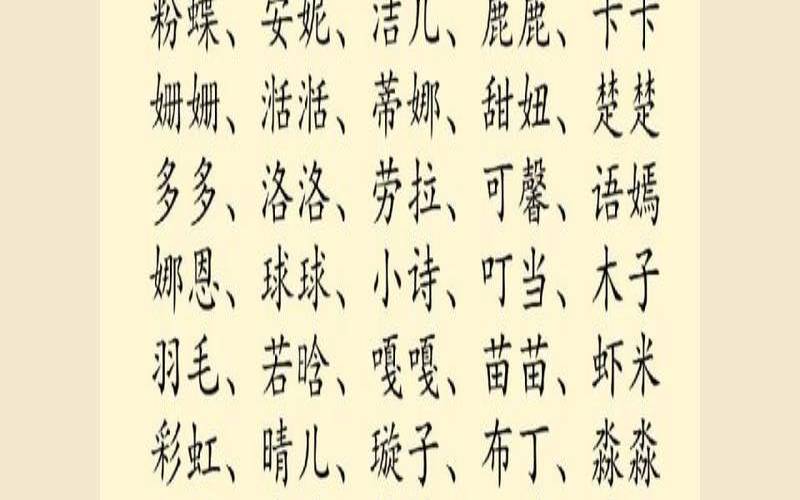 粉蝶、安妮、洁儿、鹿鹿、卡卡
姗姗、湉湉、蒂娜、甜妞、楚楚
多多、洛洛、劳拉、可馨、语嫣
娜恩、球球、小诗、叮当、木子
羽毛、若晗、嘎嘎、苗苗、虾米
彩虹、晴儿、璇子、布丁、淼淼